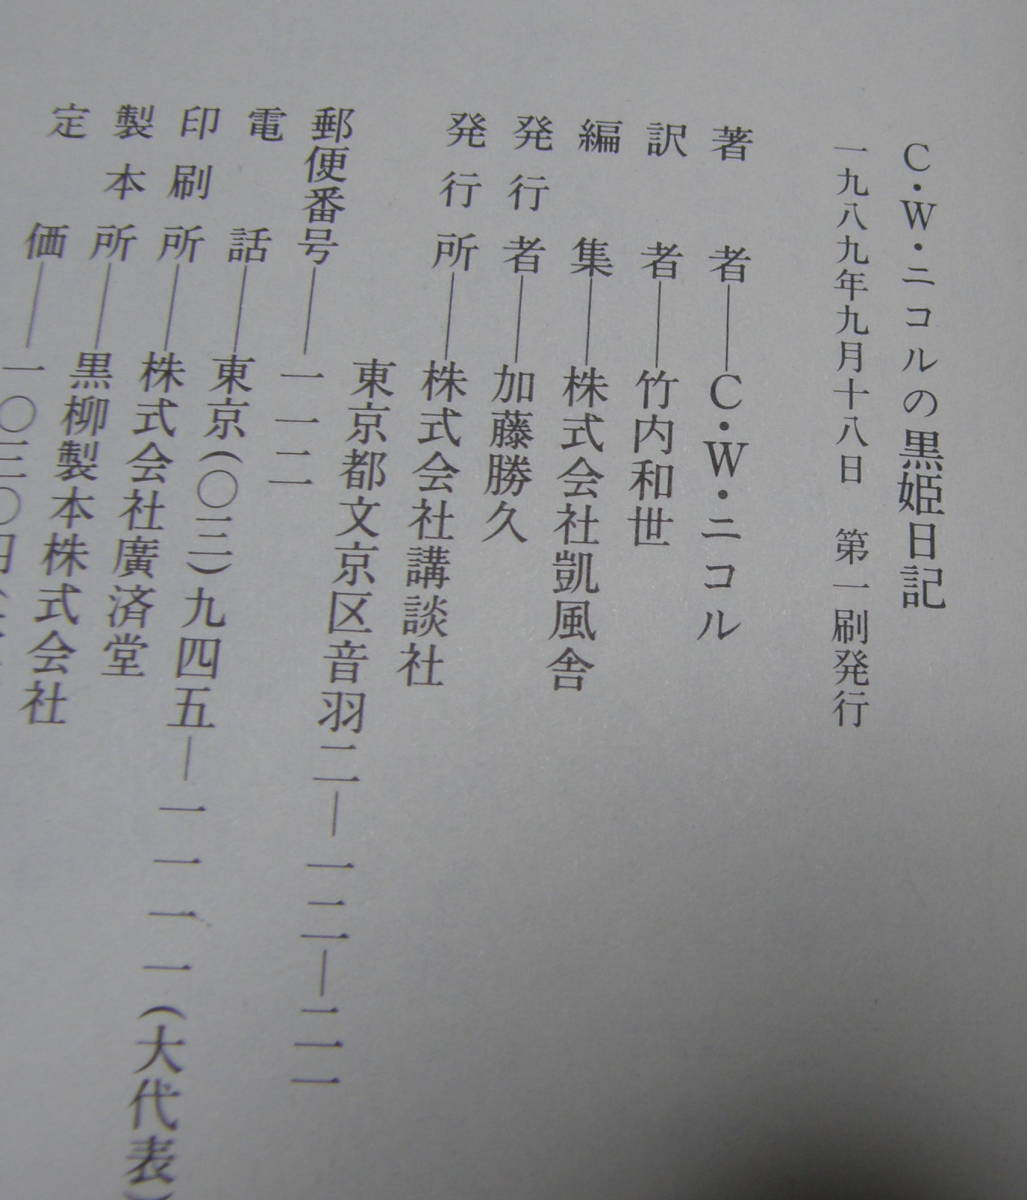 C・W・ニコルの黒姫日記
一九八九年九月十八日 第一刷発行
著者――C・W・ニコル
訳者――竹内和世
編集――株式会社凱風舎
発行者――加藤勝久
発行所――株式会社講談社
東京都文京区音羽二―一二―二一
郵便番号――一一二
電話――東京(〇三)九四五―一一一一(大代表)
印刷所――株式会社廣済堂
製本所――黒柳製本株式会社
定価――一〇三〇円